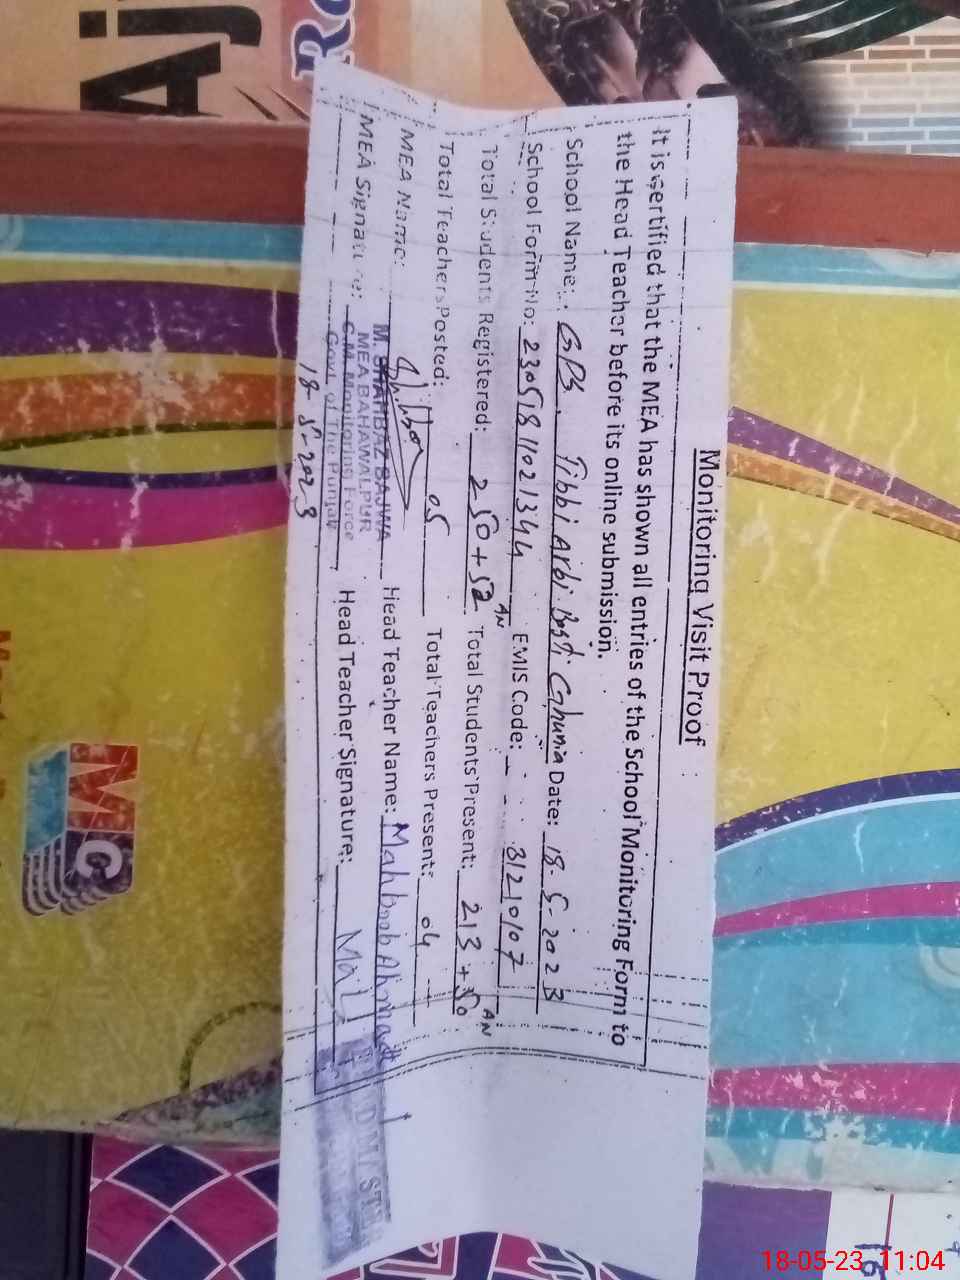 Monitoring Visit Proof
It is certified that the MEA has shown all entries of the School Monitoring Form to
the Head Teacher before its online submission.
School Name: GPS Tibbi Arbi Basti Ghunia Date: 18-5-2023
School Form No: 23051811021344 EMIS Code: 31210107
Total Students Registered: 250+52 AN Total Students Present: 213+50 AN
Total Teachers Posted: 05 Total Teachers Present: 04
MEA Name: M. SHAHBAZ BAJWA Head Teacher Name: Mahboob Ahmad
MEA BAHAWALPUR
MEA Signature: C.M. Monitoring Force Head Teacher Signature:
Govt. of The Punjab
18-5-2023
Aj
MC
18-05-23 11:04